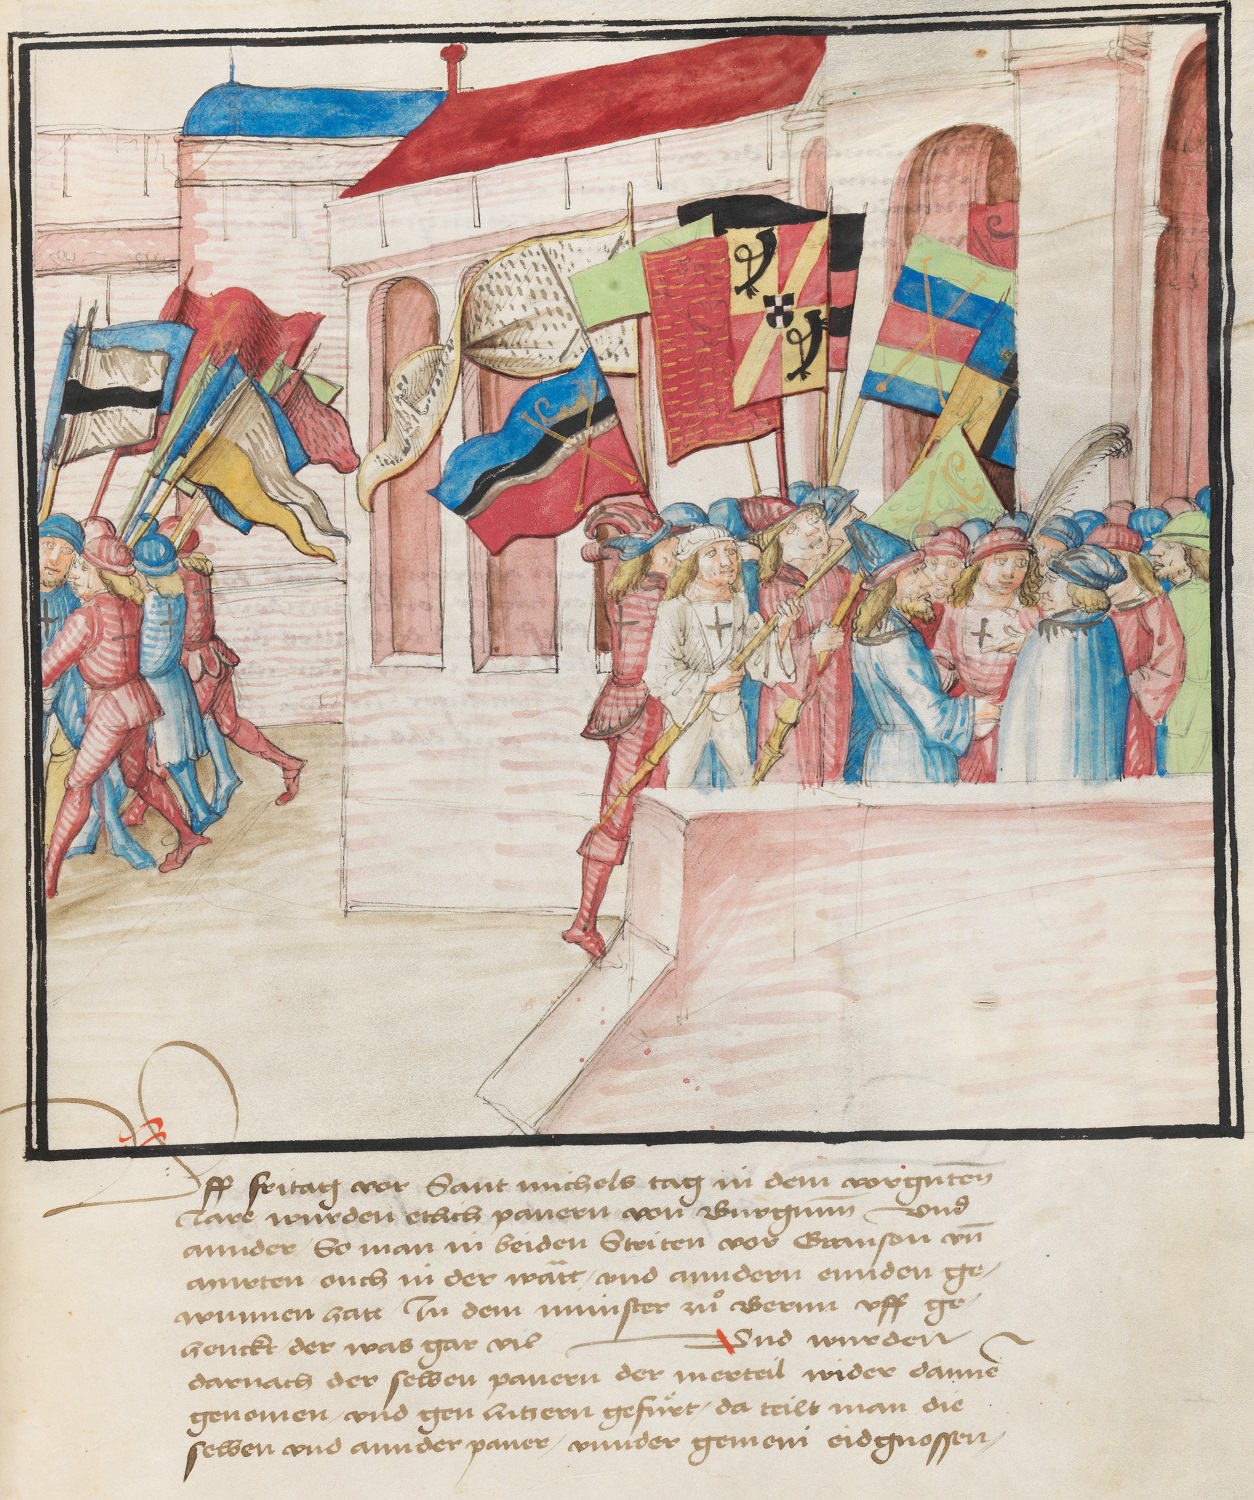 Uff fritag vor Sant michels tag in dem vorgnten
Jare wurden ettlich panern von Burgunn Und
annder So man in beiden Striten vor Granson vn̄
murten ouch in der wătt / vnd anndern ennden ge/
wunnen hatt In dem münster zů Bernn vff ge/
henckt der was gar vil Und wurden
darnach der selben panern der merteil wider dannen
genomen / vnd gen lutzern gefürt / da teilt man die
selben vnd annder paner / vnnder gemein eidgnossen /